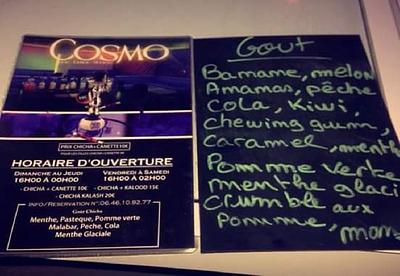 COSMO
PRIX CHICHA+CANETTE 10€
HORAIRE D'OUVERTURE
DIMANCHE AU JEUDI
16H00 À 00H00
VENDREDI À SAMEDI
16H00 À 02H00
- CHICHA + CANETTE 10€
- CHICHA + KALOOD 15€
- CHICHA KALASH 20€
INFO/RESERVATION N°:06.46.10.92.77
Goût Chicha
Menthe, Pasteque, Pomme verte
Malabar, Peche, Cola
Menthe Glaciale
Gout
Banane, melon
Ananas, pêche
Cola, Kiwi,
chewing gum,
Caramel, menth
Pomme verte
menthe glaci
Crumble aux
Pomme,